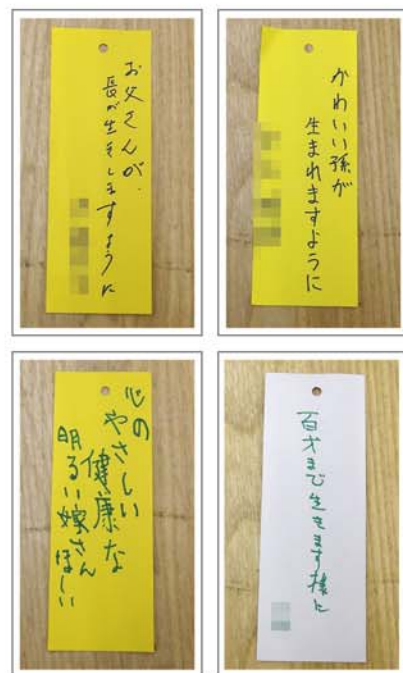 お父さんが、
長が生きしますように
かわいい孫が
生まれますように
心の
やさしい
健康な
明るい嫁さん
ほしい
百才まで生きます様に